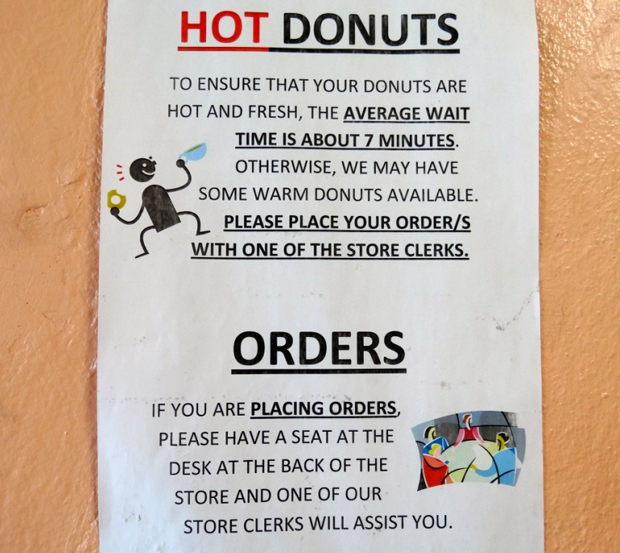 HOT DONUTS
TO ENSURE THAT YOUR DONUTS ARE
HOT AND FRESH, THE AVERAGE WAIT
TIME IS ABOUT 7 MINUTES.
OTHERWISE, WE MAY HAVE
SOME WARM DONUTS AVAILABLE.
PLEASE PLACE YOUR ORDER/S
WITH ONE OF THE STORE CLERKS.
ORDERS
IF YOU ARE PLACING ORDERS,
PLEASE HAVE A SEAT AT THE
DESK AT THE BACK OF THE
STORE AND ONE OF OUR
STORE CLERKS WILL ASSIST YOU.